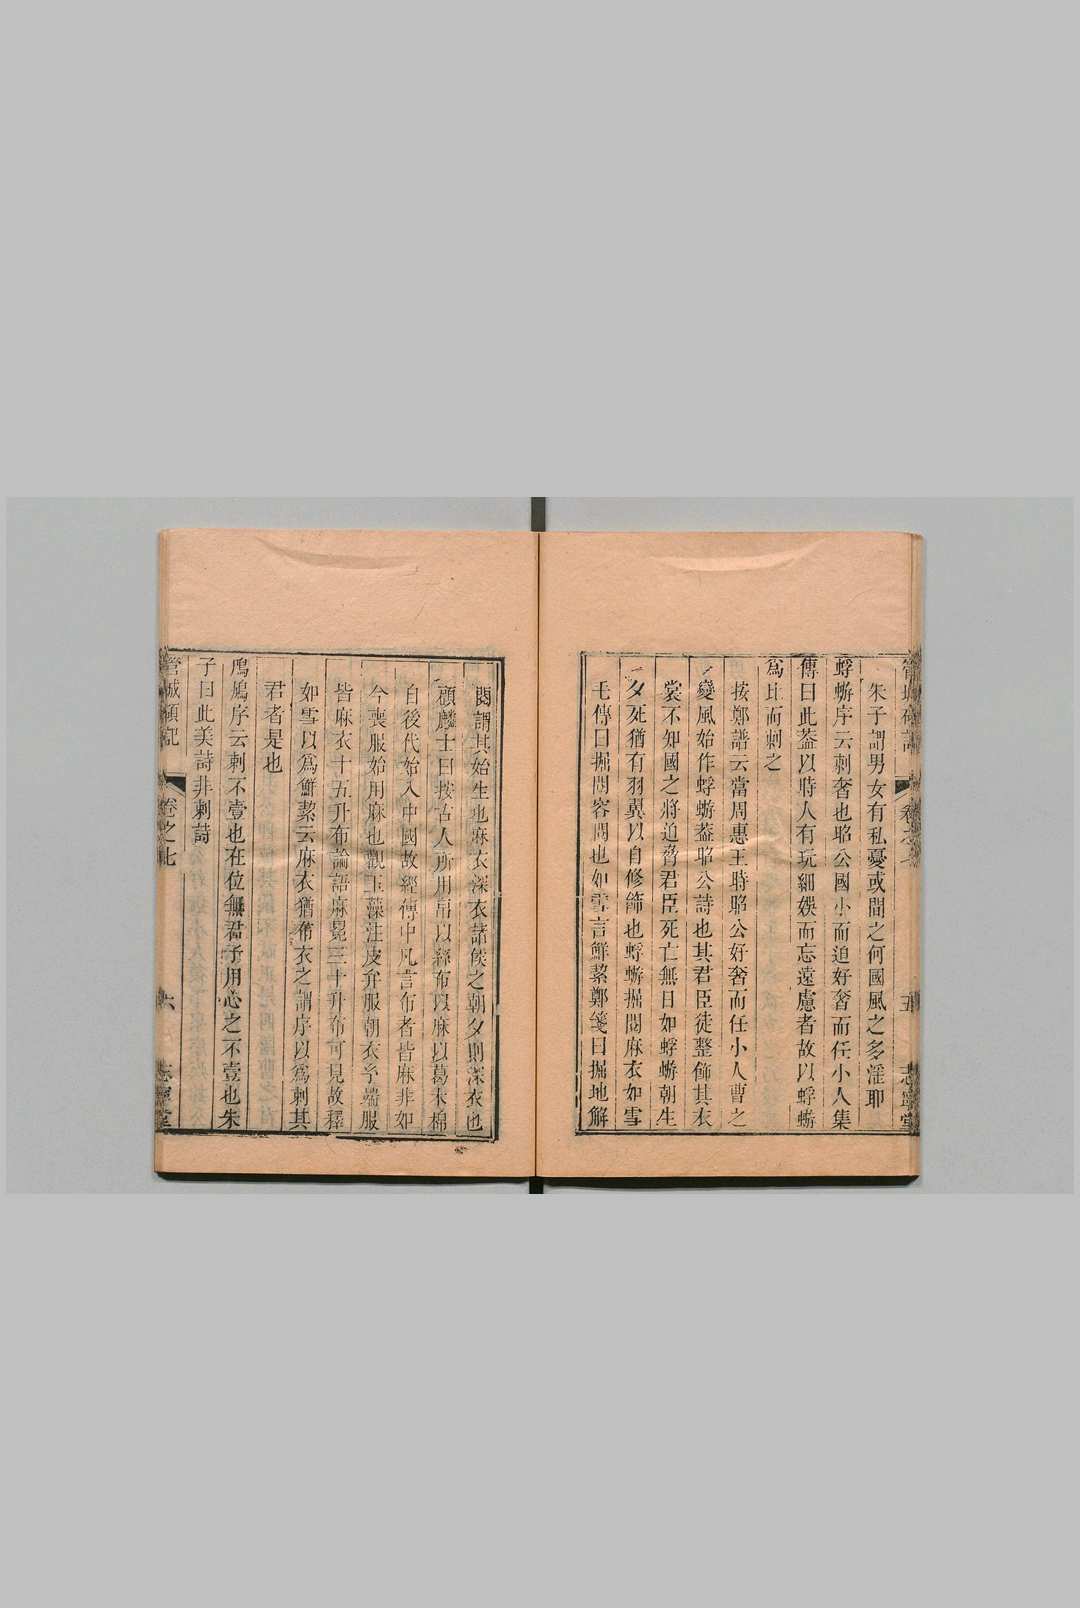 管城碩記 卷之七 五 志寧堂
朱子謂男女有私憂或間之何國風之多淫耶
蜉蝣序云刺奢也昭公國小而迫好奢而任小人集
傳曰此葢以時人有玩細娛而忘遠慮者故以蜉蝣
爲比而刺之
按鄭譜云當周惠王時昭公好奢而任小人曹之
變風始作蜉蝣葢昭公詩也其君臣徒整飾其衣
裳不知國之將迫脅君臣死亡無日如蜉蝣朝生
夕死猶有羽翼以自修飾也蜉蝣掘閱麻衣如雪
毛傳曰掘閱容閱也如雪言鮮絜鄭箋曰掘地解
閱謂其始生也麻衣深衣諸侯之朝夕則深衣也
顧麟士曰按古人所用帛以絲布以麻以葛木棉
自後代始入中國故經傳中凡言布者皆麻非如
今喪服始用麻也觀玉藻注皮弁服朝衣玄端服
皆麻衣十五升布論語麻冕三十升布可見故釋
如雪以爲鮮絜云麻衣猶布衣之謂序以爲刺其
君者是也
鳲鳩序云刺不壹也在位無君子用心之不壹也朱
子曰此美詩非刺詩
管城碩記 卷之七 六 志寧堂